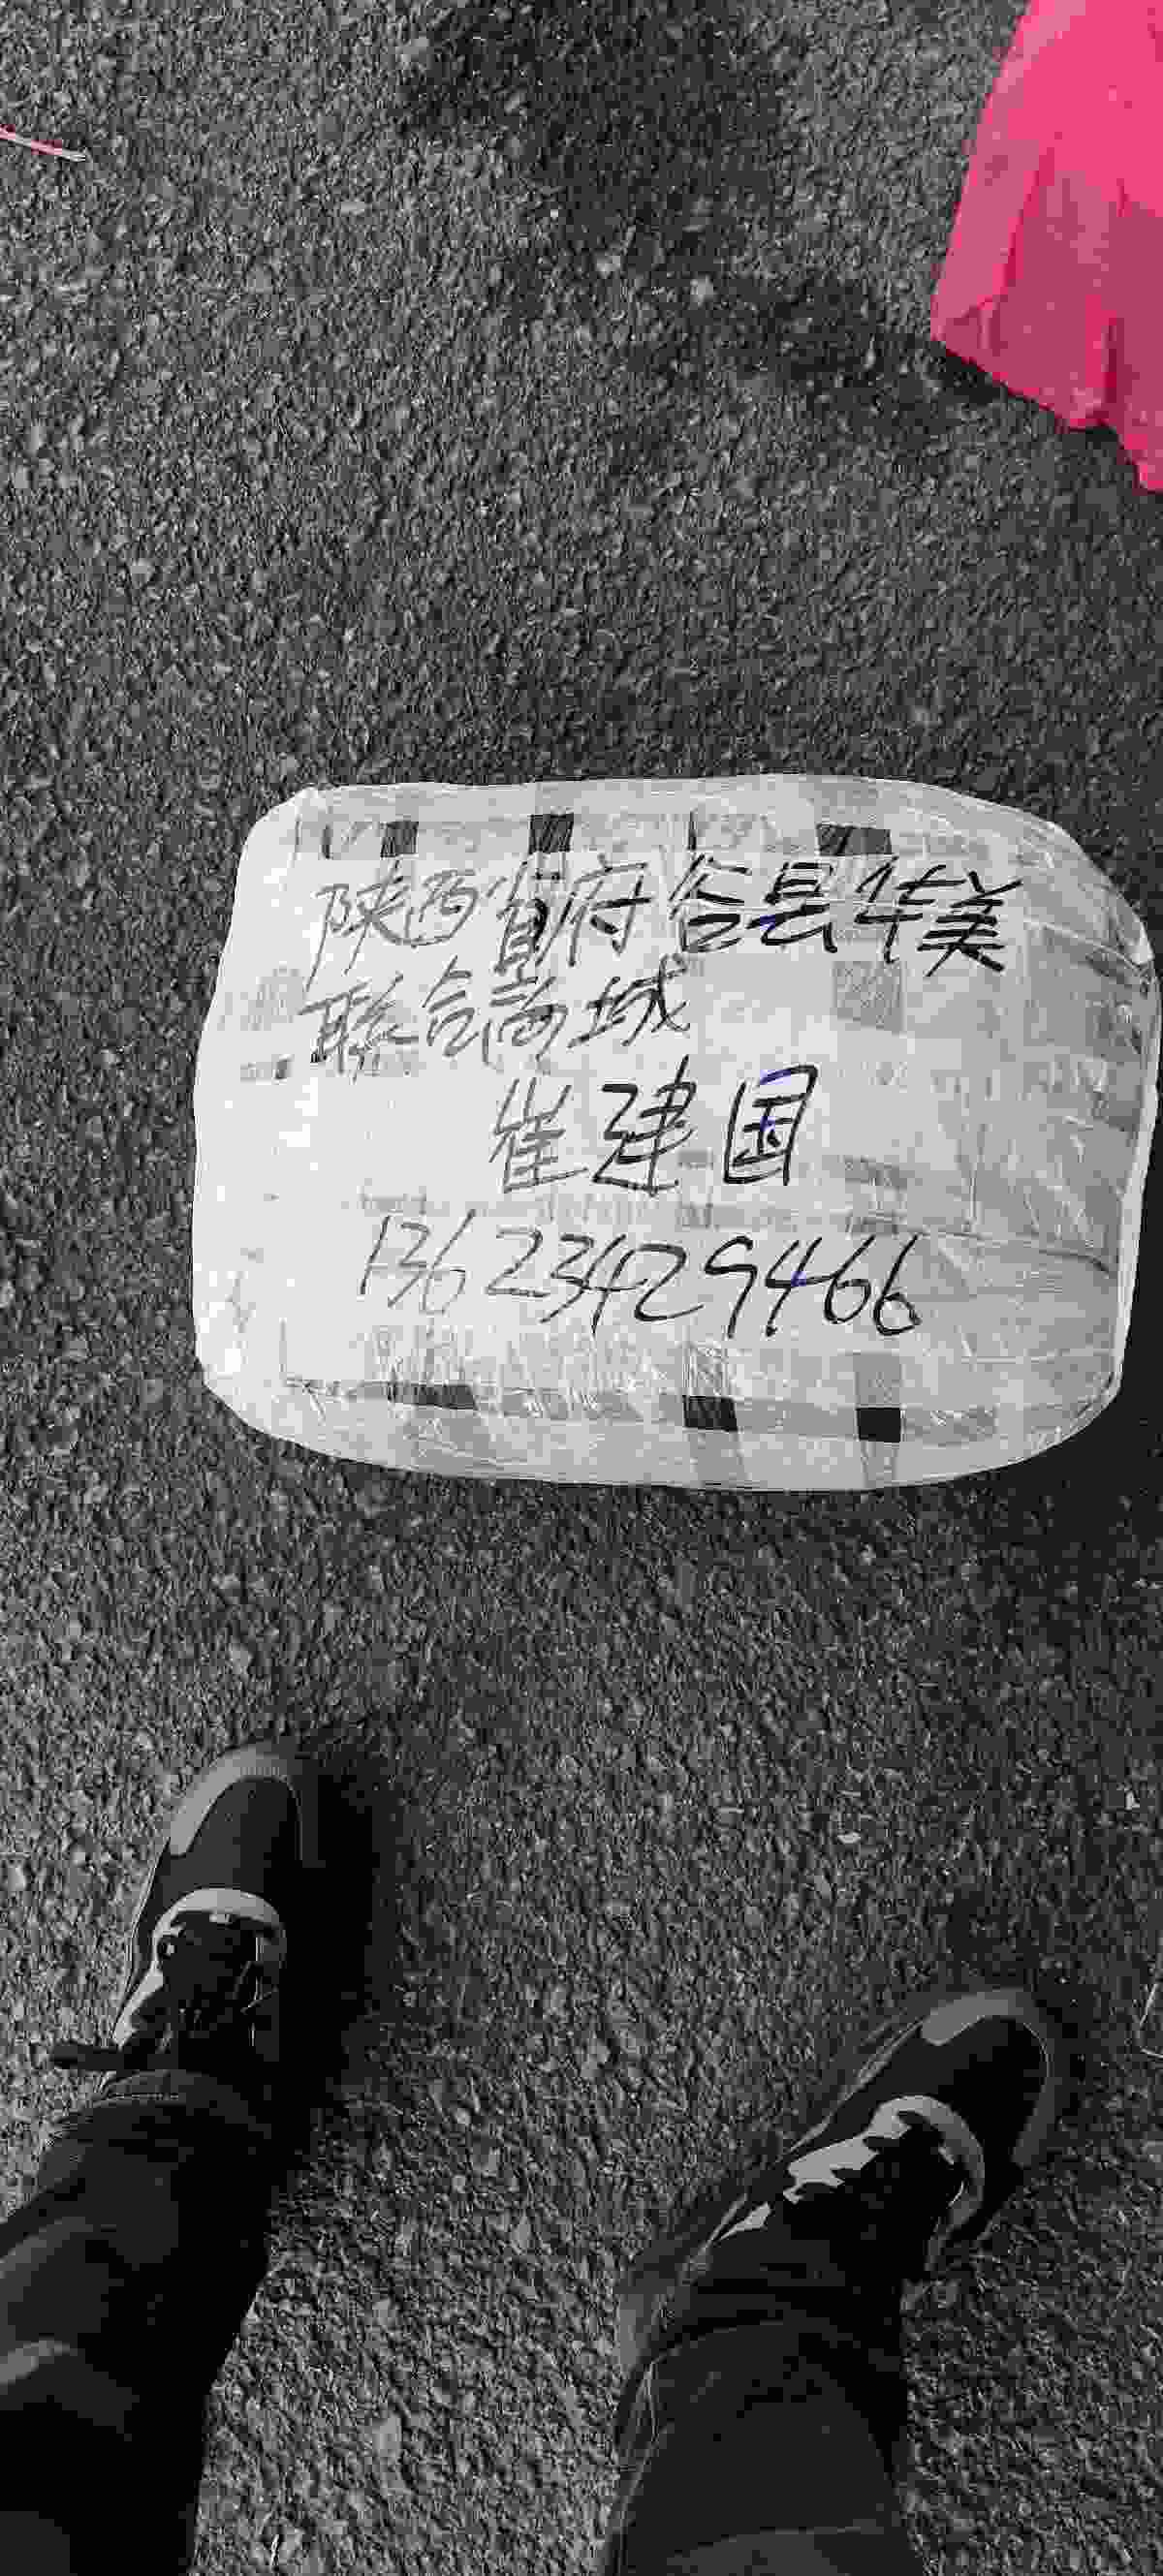 陕西省府谷县华美
联合商城
崔建国
13623429466